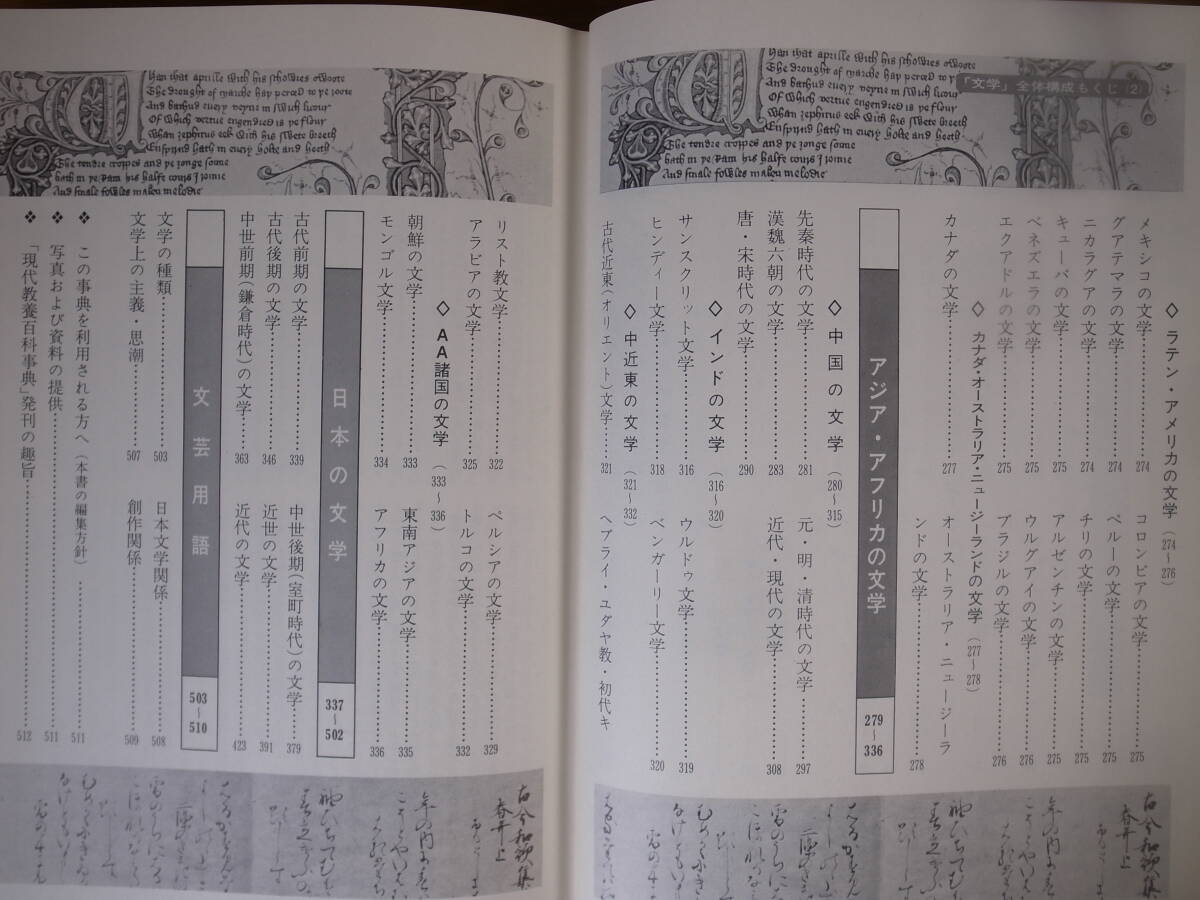 「文学」全体構成もくじ(2)
Whan that aprille with his showres swoote
The drought of marche hath perced to ye roote
And bathud every veyne in swich licour
Of which vertue engendred is ye flour
Whan zephirus eek with his swete breeth
Enspirud hath in every holte and heeth
The tendre croppes and ye yonge sonne
hath in ye Ram his halfe cours I ronne
And smale fowles maken melodie
◇ラテン・アメリカの文学(274~276)
メキシコの文学……274
コロンビアの文学……275
グアテマラの文学……274
ペルーの文学……275
ニカラグアの文学……274
チリの文学……275
キューバの文学……275
アルゼンチンの文学……275
ベネズエラの文学……275
ウルグアイの文学……276
エクアドルの文学……275
ブラジルの文学……276
◇カナダ・オーストラリア・ニュージーランドの文学(277~278)
カナダの文学……277
オーストラリア・ニュージーラ
ンドの文学……278
アジア・アフリカの文学 279~336
◇中国の文学(280~315)
先秦時代の文学……281
元・明・清時代の文学……297
漢魏六朝の文学……283
近代・現代の文学……308
唐・宋時代の文学……290
◇インドの文学(316~320)
サンスクリット文学……316
ウルドゥ文学……319
ヒンディー文学……318
ベンガーリー文学……320
◇中近東の文学(321~332)
古代近東(オリエント)文学……321
ヘブライ・ユダヤ教・初代キ
リスト教文学……322
ペルシアの文学……329
アラビアの文学……325
トルコの文学……332
◇AA諸国の文学(333~336)
朝鮮の文学……333
東南アジアの文学……335
モンゴル文学……334
アフリカの文学……336
日本の文学 337~502
古代前期の文学……339
中世後期(室町時代)の文学……379
古代後期の文学……346
近世の文学……391
中世前期(鎌倉時代)の文学……363
近代の文学……423
文芸用語 503~510
文学の種類……503
日本文学関係……508
文学上の主義・思潮……507
創作関係……509
❖この事典を利用される方へ(本書の編集方針)……511
❖写真および資料の提供……511
❖「現代教養百科事典」発刊の趣旨……512
古今和歌集
春歌上